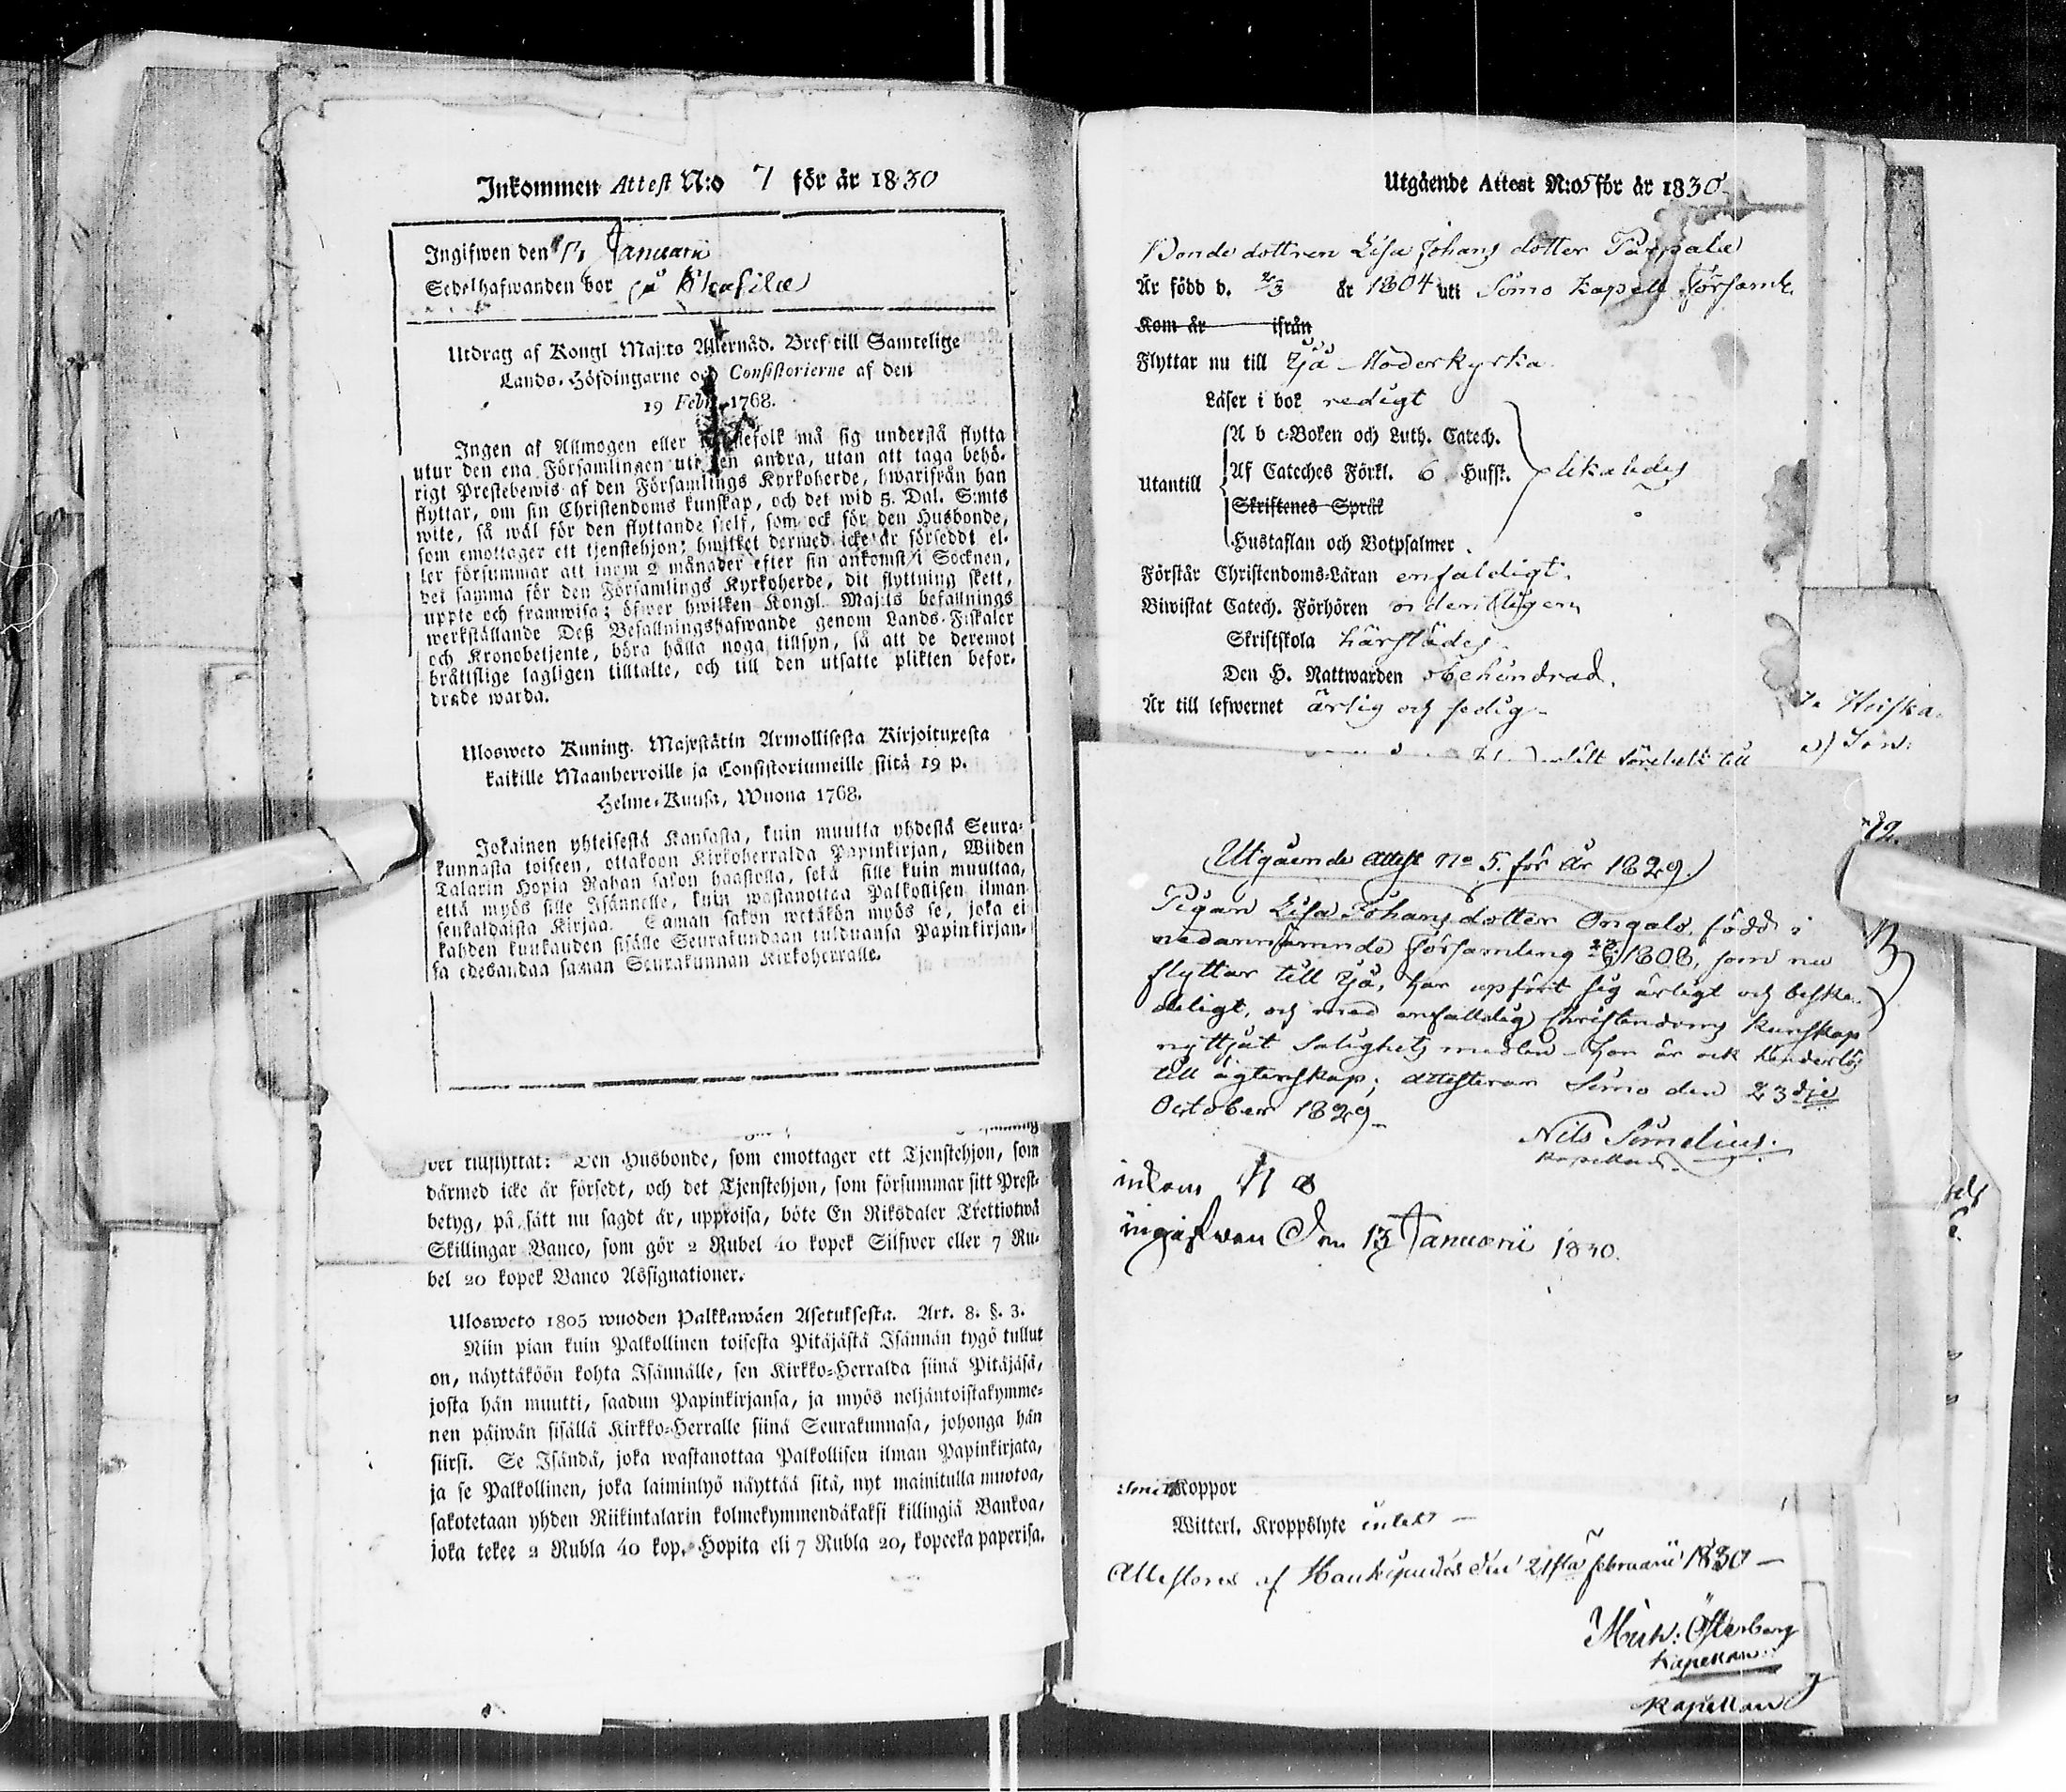 Inkommen Attest N:o 7 för år 1830
Ingifwen den Januarii
Sedelhafwanden bor på
Utdrag af Kongl Maj:ts Allernåd. Bref till Samtelige
Lands-Höfdingarne och Consistorierne af den
19 Febr. 1768.
Ingen af Allmogen eller må sig understå flytta
utur den ena Församlingen uti den andra, utan att taga behö-
rigt Prestebewis af den Församlings Kyrkoherde, hwarifrån han
flyttar, om sin Christendoms kunskap, och det wid 5. Dal. S:mts
wite, så wäl för den flyttande sjelf, som ock för den Husbonde,
som emottager ett tjenstehjon; hwilket dermed icke är förseddt el-
ler försummar att inom 2 månader efter sin ankomst i Socknen,
det samma för den Församlings Kyrkoherde, dit flyttning skett,
uppte och framwisa; öfwer hwilken Kongl. Maj:ts befallnings
werkställande Deß Befallningshafwande genom Lands-Fiskaler
och Kronobetjente, böra hålla noga tillsyn, så att de deremot
bråttslige lagligen tilltalte, och till den utsatte plikten befor-
drade warda.
Ulosweto Kuning. Majestätin Armollisesta Kirjoituxesta
kaikille Maanherroille ja Consistoriumeille siitä 19 p.
Helme-Kuusa, Wuona 1768.
Jokainen yhteisestä Kansasta, kuin muutta yhdestä Seura-
kunnasta toiseen, ottakoon Kirkoherralda Papinkirjan, Wiiden
Talarin Hopia Rahan sakon haastolla, sekä sille kuin muuttaa,
että myös sille Isännelle, kuin wastanottaa Palkollisen ilman
senkaldaista Kirjaa. Saman sakon wetäkön myös se, joka ei
kahden kuukauden sisälle Seurakundaan tulduansa Papinkirjan-
sa edesandaa saman Seurakunnan Kirkoherralle.
det tillflyttat: Den Husbonde, som emottager ett Tjenstehjon, som
därmed icke är försedt, och det Tjenstehjon, som försummar sitt Prest-
betyg, på sätt nu sagdt är, uppwisa, böte En Riksdaler Trettiotwå
Skillingar Banco, som gör 2 Rubel 40 kopek Silfwer eller 7 Ru-
bel 20 kopek Banco Assignationer.
Ulosweto 1805 wuoden Palkkawäen Asetuksesta. Art. 8. §. 3.
Niin pian kuin Palkollinen toisesta Pitäjästä Isännän tygö tullut
on, näyttäköön kohta Isännälle, sen Kirkko-Herralda siinä Pitäjäsä,
josta hän muutti, saadun Papinkirjansa, ja myös neljäntoistakymme-
nen päiwän sisällä Kirkko-Herralle siinä Seurakunnasa, johonga hän
siirsi. Se Isändä, joka wastanottaa Palkollisen ilman Papinkirjata,
ja se Palkollinen, joka laiminlyö näyttää sitä, nyt mainitulla muotoa,
sakotetaan yhden Riikintalarin kolmekymmendäkaksi killingiä Bankoa,
joka tekee 2 Rubla 40 kop. Hopita eli 7 Rubla 20, kopeeka paperisa.
Utgående Attest N:o 5 för år 1830
Bonde dottren Lisa Johans dotter Purpala
Är född d. 2/3 år 1804 uti Simo Kapell Församl.
Kom år ifrån
Flyttar nu till Ijå Moderkyrka
Läser i bok redigt
A b c-Boken och Luth. Catech.
Utantill Af Cateches Förkl. 6 Hufst. likaledes
Skriftenes Språk
Hustaflan och Botpsalmer
Förstår Christendoms-Läran enfaldigt.
Biwistat Catech. Förhören ordenteligen
Skriftskola härstädes
Den H. Nattwarden obehindrad.
Är till lefwernet ärlig och sedig
(Utgående Attest No 5. för år 1829.)
Pigan Lisa Johans dotter Ongalo, född i
nedannämnde Församling 1808, som nu
flyttar till Ijå, har upfört sig ärligt och beske-
deligt, och med enfalldig Christendoms kunskap
nyttjat salighets medlen. Hon är ock hinderlös
till ägtenskap; attesterar Simo den 23dje
October 1829
Nils Simelius.
Kapellan.
inkom N 8
ingifwen Den 13 Januarii 1830.
Koppor
Witterl. Kroppslyte intet
Attesteras af Haukipudas den 21sta februarii 1830
Mich: Österberg
Kapellan
Kapellan